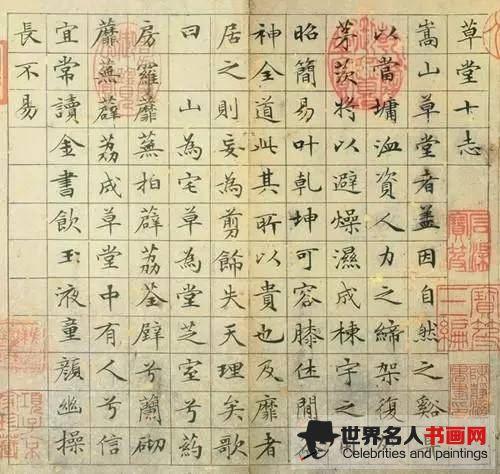 草堂十志
嵩山草堂者盖因自然之谿
以當墉洫資人力之締架復
茅茨將以避燥濕成棟宇之
昭簡易叶乾坤可容膝休閒
神全道此其所以貴也及靡者
居之則妄為剪飾失天理矣歌
曰 山為宅草為堂芝室兮葯
房羅蘼蕪拍薜荔荃壁兮蘭砌
蘼蕪薜荔成草堂中有人兮信
宜常讀金書飲玉液童顏幽操
長不易
世界名人书画网
Celebrities and paintings